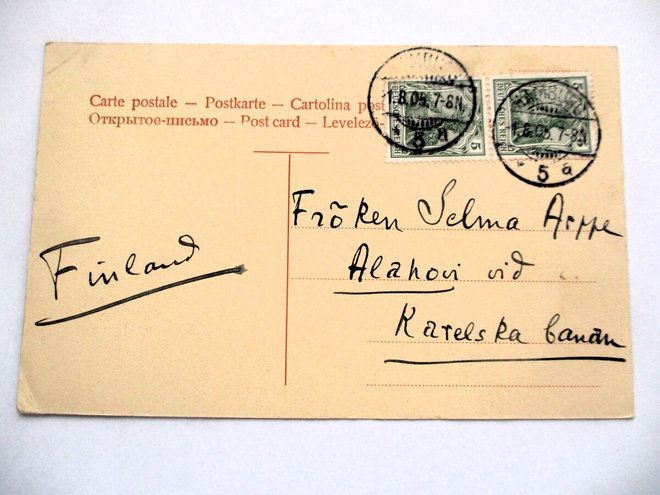 Carte postale — Postkarte — Cartolina post
Открытое-письмо — Post card — Levelező-
5 5
DEUTSCHES REICH
8.05. 7-8N
5 a
8.05. 7-8N
5 a
Fröken Selma Arppe
Alahovi vid
Karelska banan
Finland